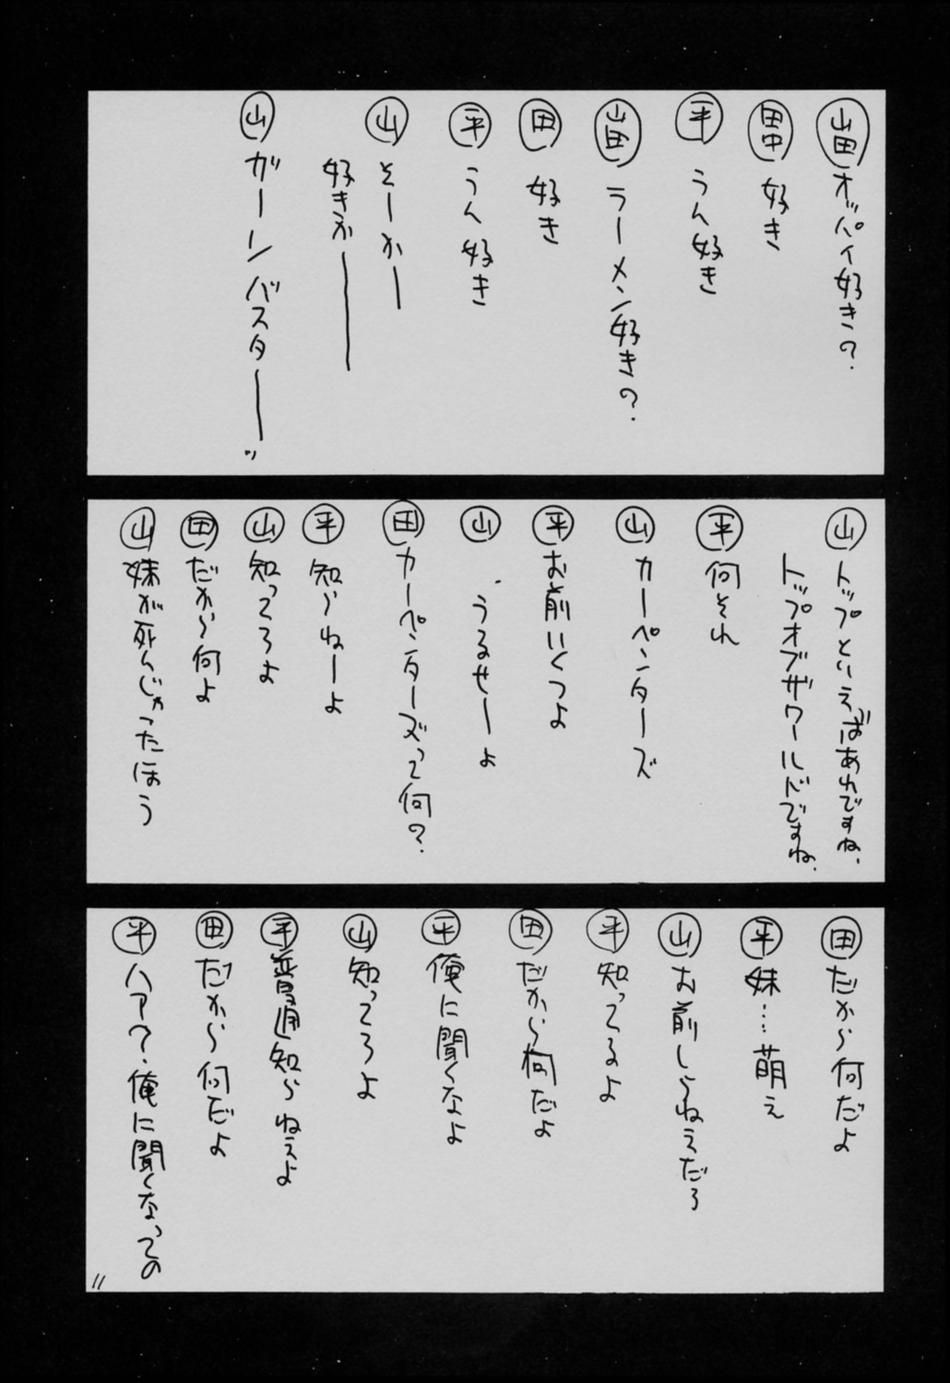 山田 オッパイ好きの?
田中 好き
平 うん好き
山田 ラーメン好きの?
田 好き
平 うん好き
山 そーかー
好きかー
山 ガーンバスターーッ
山 トップといえばあれですね、
トップオブザワールドですね、
平 何それ
山 カーペンターズ
平 お前いくつよ
山 うるせーよ
田 カーペンターズって何?
平 知らねーよ
山 知ってろよ
田 だから何よ
山 妹が死んじゃったほう
田 だから何だよ
平 妹…萌え
山 お前しらねえだろ
平 知ってるよ
田 だから何だよ
平 俺に聞くなよ
山 知ってろよ
平 普通知らねえよ
田 だから何だよ
平 ハア?俺に聞くなっての
11